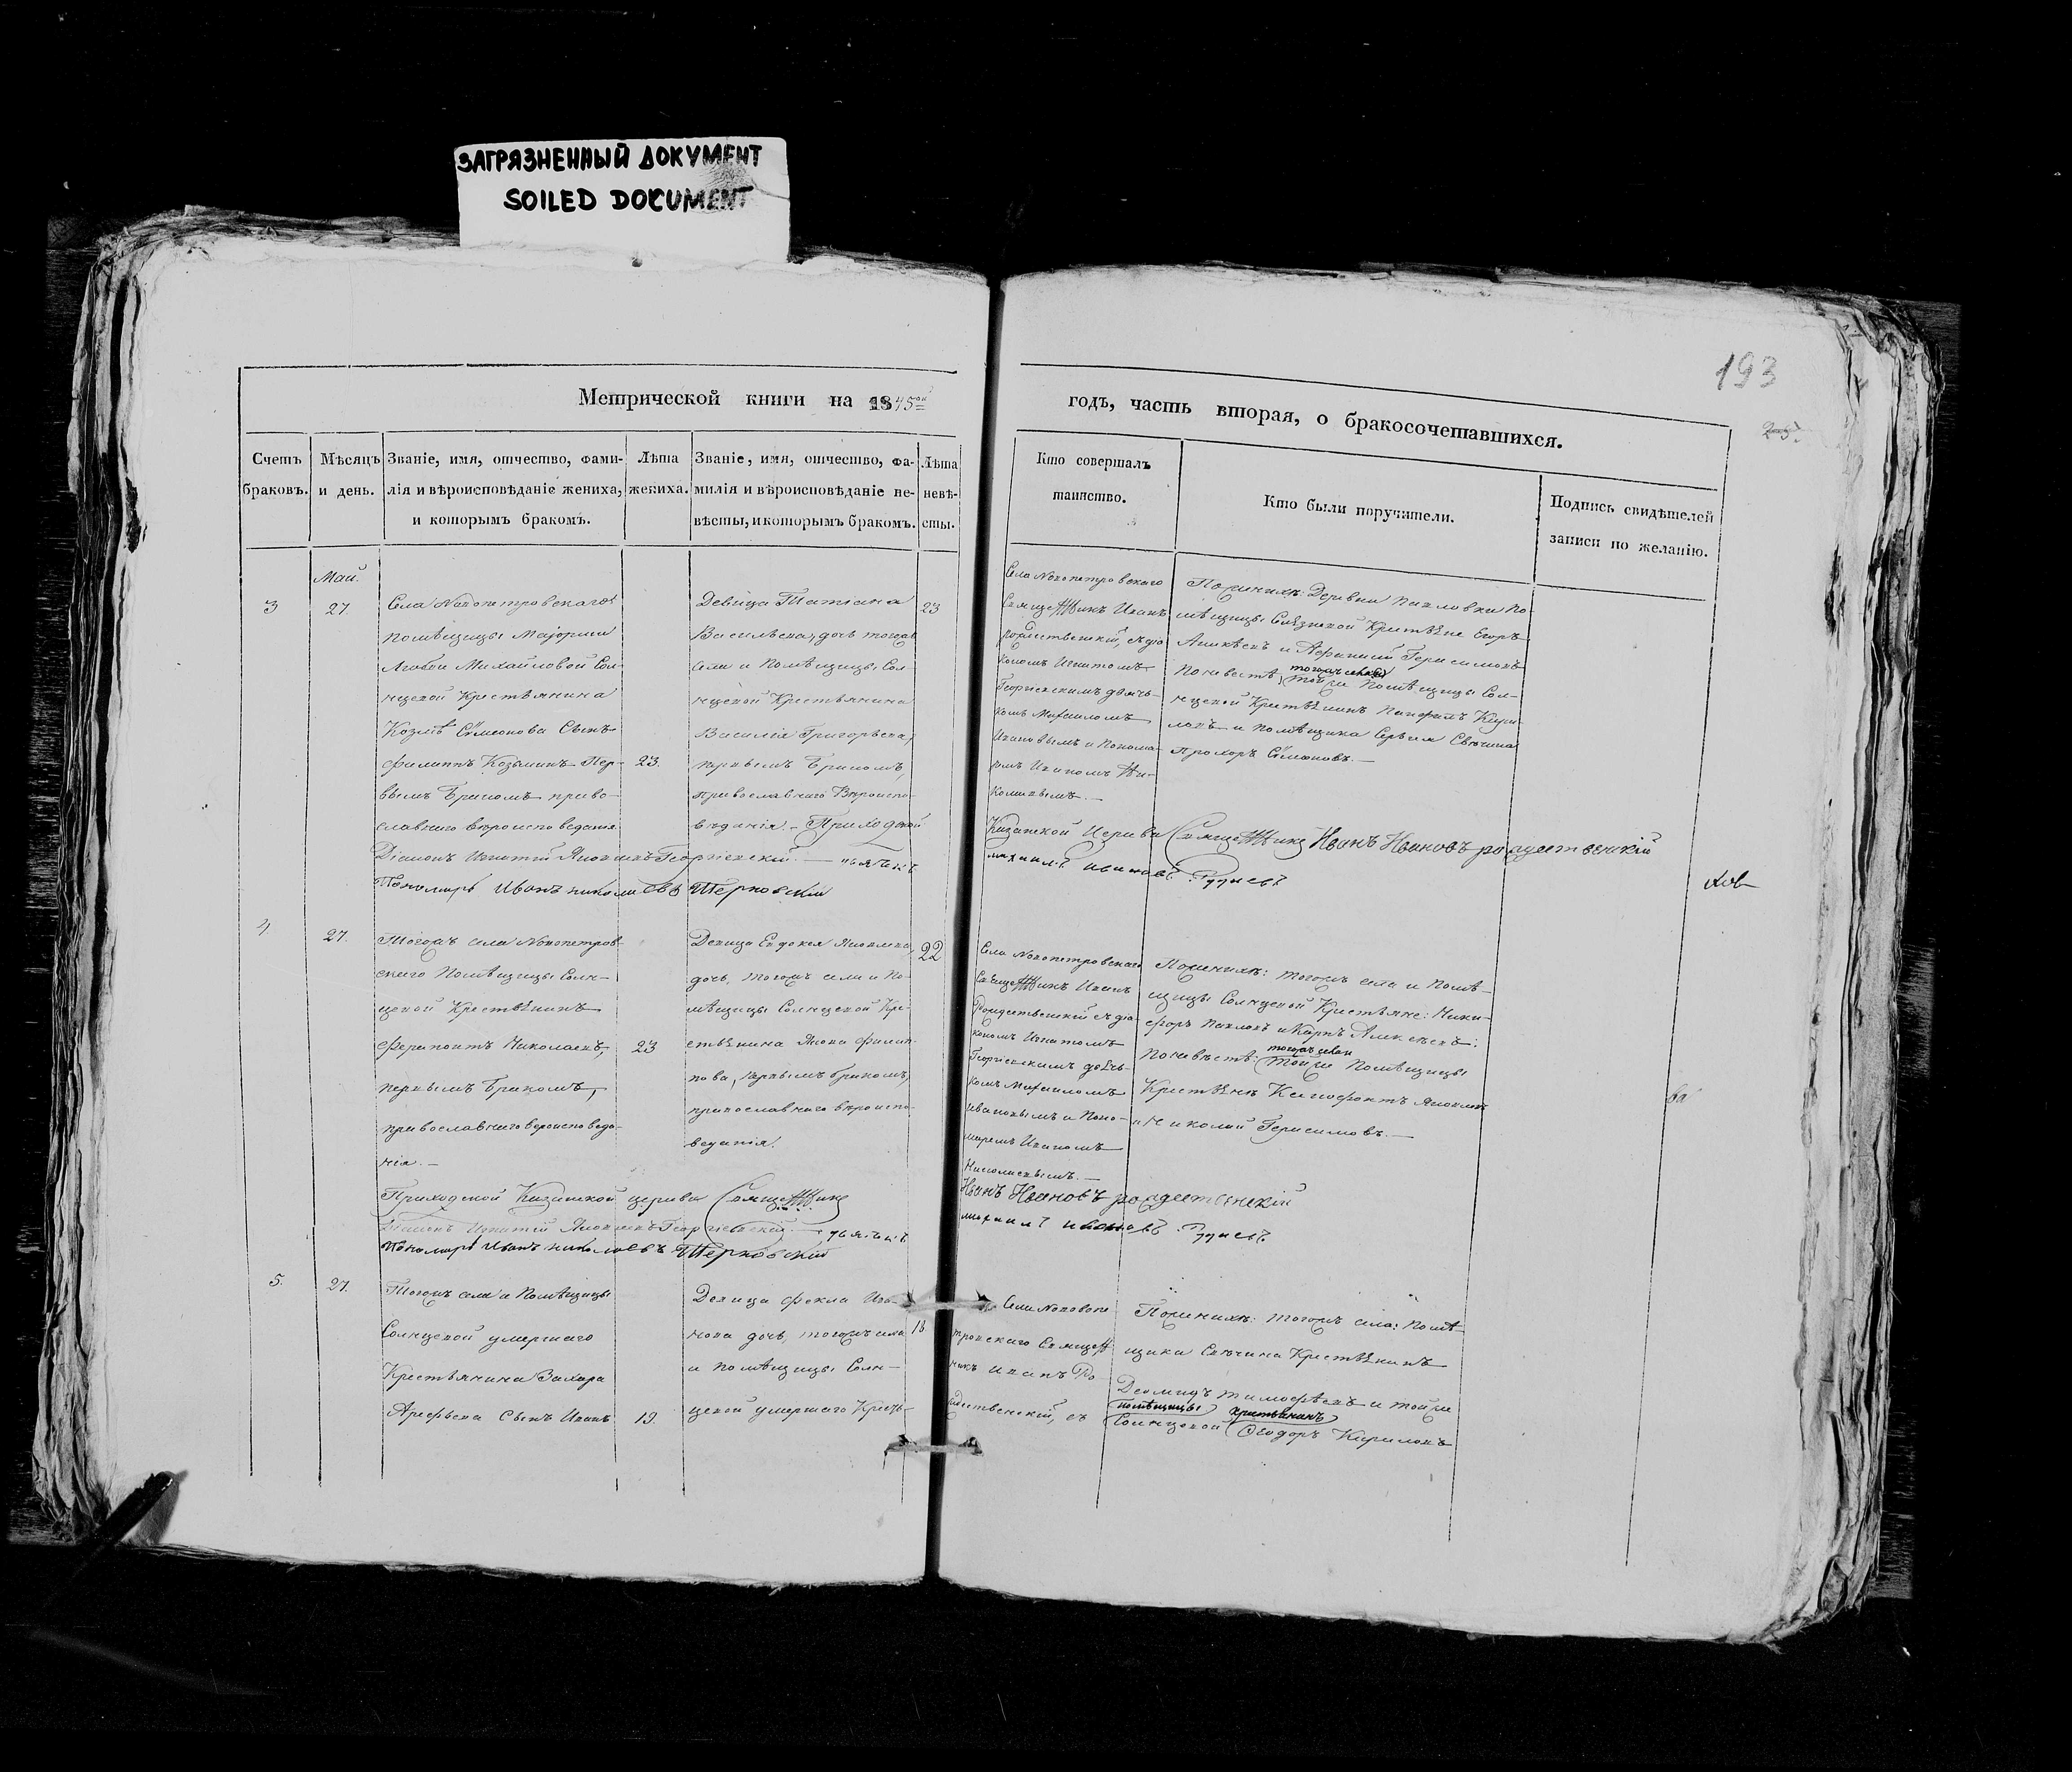 ЗАГРЯЗНЕННЫЙ ДОКУМЕНТ
SOILED DOCUMENT
193
25.
Метрической книги на 1845ой
годъ, часть вторая, о бракосочетавшихся.
Счетъ браковъ.
Мѣсяцъ и день.
Званіе, имя, отчество, фами-
лія и вѣроисповѣданіе жениха,
и которымъ бракомъ.
Лѣта
жениха.
Званіе, имя, отчество, фа-
милія и вѣроисповѣданіе не-
вѣсты, и которымъ бракомъ.
Лѣта
невѣ-
сты.
Кто совершалъ
таинство.
Кто были поручители.
Подпись свидѣтелей
записи по желанію.
Маій.
3
27.
Села Новопетровскаго
помѣщицы Маіорши
Любви Михайловой Сол-
нцевой Крестьянина
Козмы Симеонова Сынъ
Филиппъ Козьминъ Пер-
вымъ бракомъ право-
славнаго вѣроисповеданія
23.
Девица Татіана
Васильева, дочь тогожъ
села и Помѣщицы Сол-
нцевой Крестьянина
Василія Григорьева,
первымъ бракомъ,
православнаго Вѣроиспо-
вѣданія.
23
Села Новопетровскаго
Священникъ Иванъ
рождественскій, съ діа-
кономъ Игнатомъ
Георгіевскимъ дьячь-
комъ Михаиломъ
Ивановымъ и Понома-
ремъ Иваномъ Ни-
колаевымъ.
По женихѣ: Деревни Павловки По-
мѣщицы Крестьяне Егоръ
Алексѣевъ и Афанасій Герасимовъ
По невестѣ, тогожъ села
тойже Помѣщицы Сол-
нцевой Крестьянинъ Панфилъ Кири-
ловъ и Помѣщика Сергея Свечина
Прохоръ Симоновъ.
Приходской
Казанской Церкви Священникъ Иванъ Ивановъ рождественскій
Діаконъ Игнатій Яковлевъ Георгіевскій. дьячекъ
михаилъ ивановъ
Пономарь Иванъ николаевъ Терновскій
4
27.
Тогожъ села Новопетров-
скаго Помѣщицы Солн-
цевой Крестьянинъ
Ферапонтъ Николаевъ,
первымъ бракомъ,
православнаго вероисповеда-
нія.
23
Девица Евдокея Яковлева
дочь, тогожъ села и По-
мѣщицы Солнцевой Кре-
стьянина Якова Филип-
пова, первымъ бракомъ,
православнаго вѣроиспо-
веданія.
22
Села Новопетровскаго
Священникъ Иванъ
Рождественскій съ діа-
кономъ Игнатомъ
Георгіевскимъ дьячь-
комъ Михаиломъ
Ивановымъ и Поно-
маремъ Иваномъ
Николаевымъ.
По женихѣ: тогожъ села и Помѣ-
щицы Солнцевой Крестьяне: Ники-
форъ Павловъ и Карпъ Алексѣевъ:
По невѣстѣ: тогожъ села
тойже Помѣщицы
Крестьяне Ксенофонтъ Яковлевъ
и Николай Герасимовъ.
Приходской Казанской церкви Священникъ
Иванъ Ивановъ рождественскій
Діаконъ Игнатій Яковлевъ Георгіевскій. дьячекъ
михаилъ ивановъ
Пономарь Иванъ николаевъ Терновскій
5.
27.
Тогожъ села и Помѣщицы
Солнцевой умершаго
Крестьянина Захара
Арефьева Сынъ Иванъ
19.
Девица Фекла Ива-
нова дочь, тогожъ села
и помѣщицы Солн-
цевой умершаго Кресть-
18
Села Новопе
тровскаго Священ
никъ Иванъ Ро-
ждественскій, съ
По женихѣ: тогожъ села: Помѣ-
щика Свечина Крестьянинъ
Деомидъ Тимофѣевъ и тойже
помѣщицы крестьянинъ
Солнцевой Ѳеодоръ Кириловъ